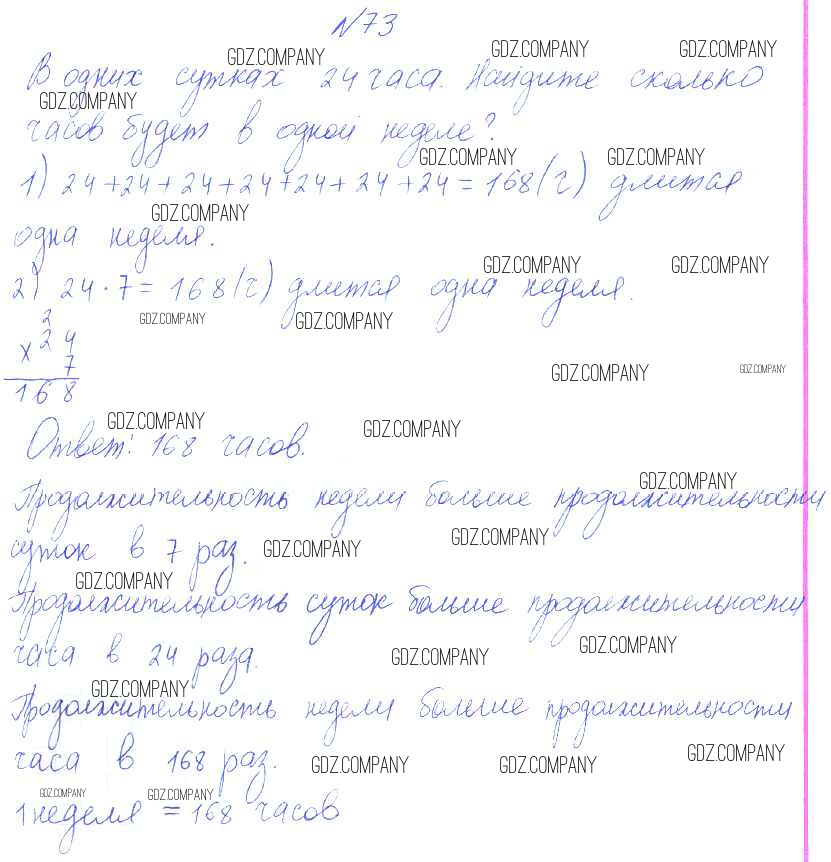 №73
В одних сутках 24 часа. Найдите сколько
часов будет в одной неделе?
1) 24+24+24+24+24+24+24=168(ч) длится
одна неделя.
2) 24·7=168(ч) длится одна неделя.
2
×24
7
168
Ответ: 168 часов.
Продолжительность недели больше продолжительности
суток в 7 раз.
Продолжительность суток больше продолжительности
часа в 24 раза.
Продолжительность недели больше продолжительности
часа в 168 раз.
1 неделя = 168 часов
GDZ.COMPANY GDZ.COMPANY GDZ.COMPANY
GDZ.COMPANY
GDZ.COMPANY GDZ.COMPANY
GDZ.COMPANY
GDZ.COMPANY GDZ.COMPANY
GDZ.COMPANY GDZ.COMPANY
GDZ.COMPANY GDZ.COMPANY
GDZ.COMPANY GDZ.COMPANY
GDZ.COMPANY
GDZ.COMPANY GDZ.COMPANY
GDZ.COMPANY
GDZ.COMPANY GDZ.COMPANY
GDZ.COMPANY
GDZ.COMPANY GDZ.COMPANY GDZ.COMPANY
GDZ.COMPANY GDZ.COMPANY